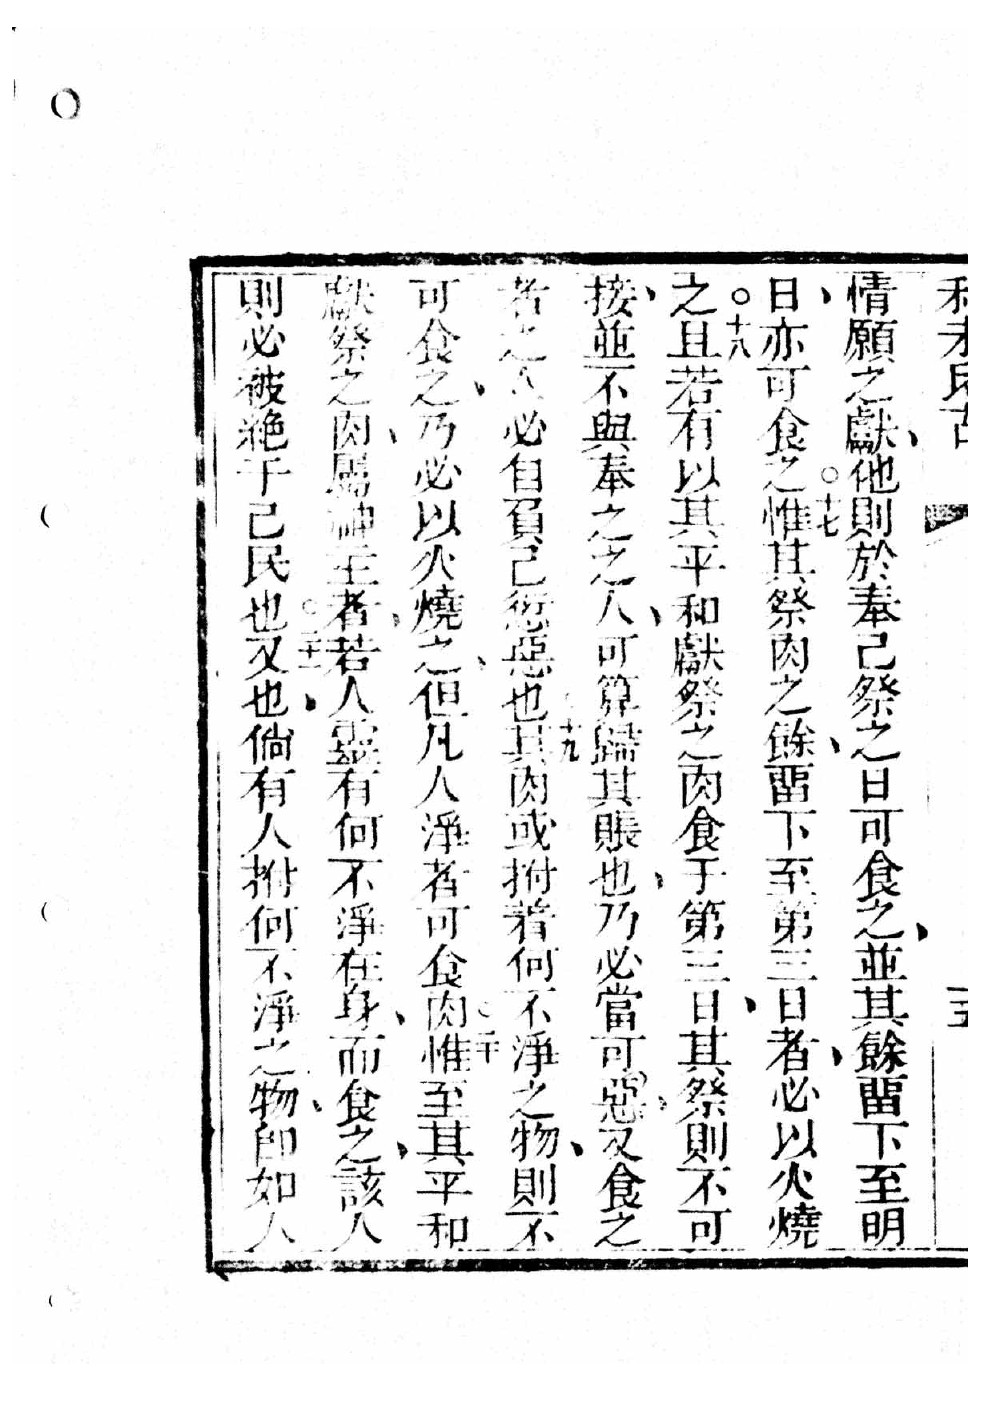 利未氏古 五
情願之獻、他則於奉己祭之日可食之、並其餘畱下至明
日、亦可食之。十七惟其祭肉之餘、畱下至第三日者、必以火燒
之。十八且若有以其平和獻祭之肉食于第三日、其祭則不可
接、並不與奉之之人、可算歸其賬也、乃必當可惡、及食之
者之人必自負己愆惡也。十九其肉或拊着何不淨之物、則不
可食之、乃必以火燒之、但凡人淨者可食肉。二十惟至其平和
獻祭之肉、屬神主者、若人靈有何不淨在身、而食之、該人
則必被絶于己民也。二十一又也、倘有人拊何不淨之物、即如人